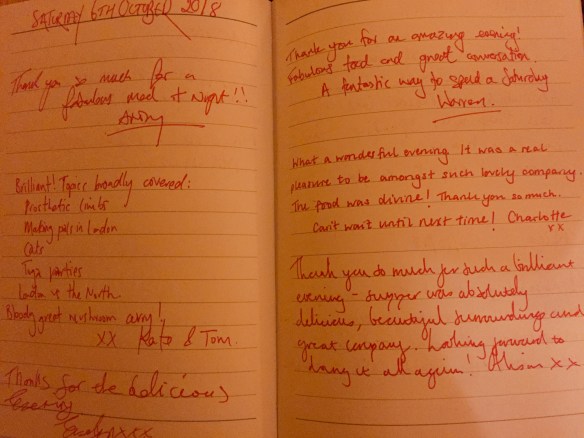 SATURDAY 6TH OCTOBER 2018
Thank you so much for a
fabulous meal & Night!!
Brilliant! Topics broadly covered:
Prosthetic limbs
Making pals in London
Cats
Toga parties
London vs the North
Bloody great mushroom curry!
XX Kate & Tom.
Thanks for the delicious
evening
xxx
Thank you for an amazing evening!
Fabulous food and great conversation.
A fantastic way to spend a Saturday
Warren.
What a wonderful evening It was a real
pleasure to be amongst such lovely company.
The food was divine! Thank you so much.
Can't wait until next time! Charlotte
xx
Thank you so much for such a brilliant
evening - supper was absolutely
delicious, beautiful surroundings and
great company. Looking forward to
doing it all again! Alison XX